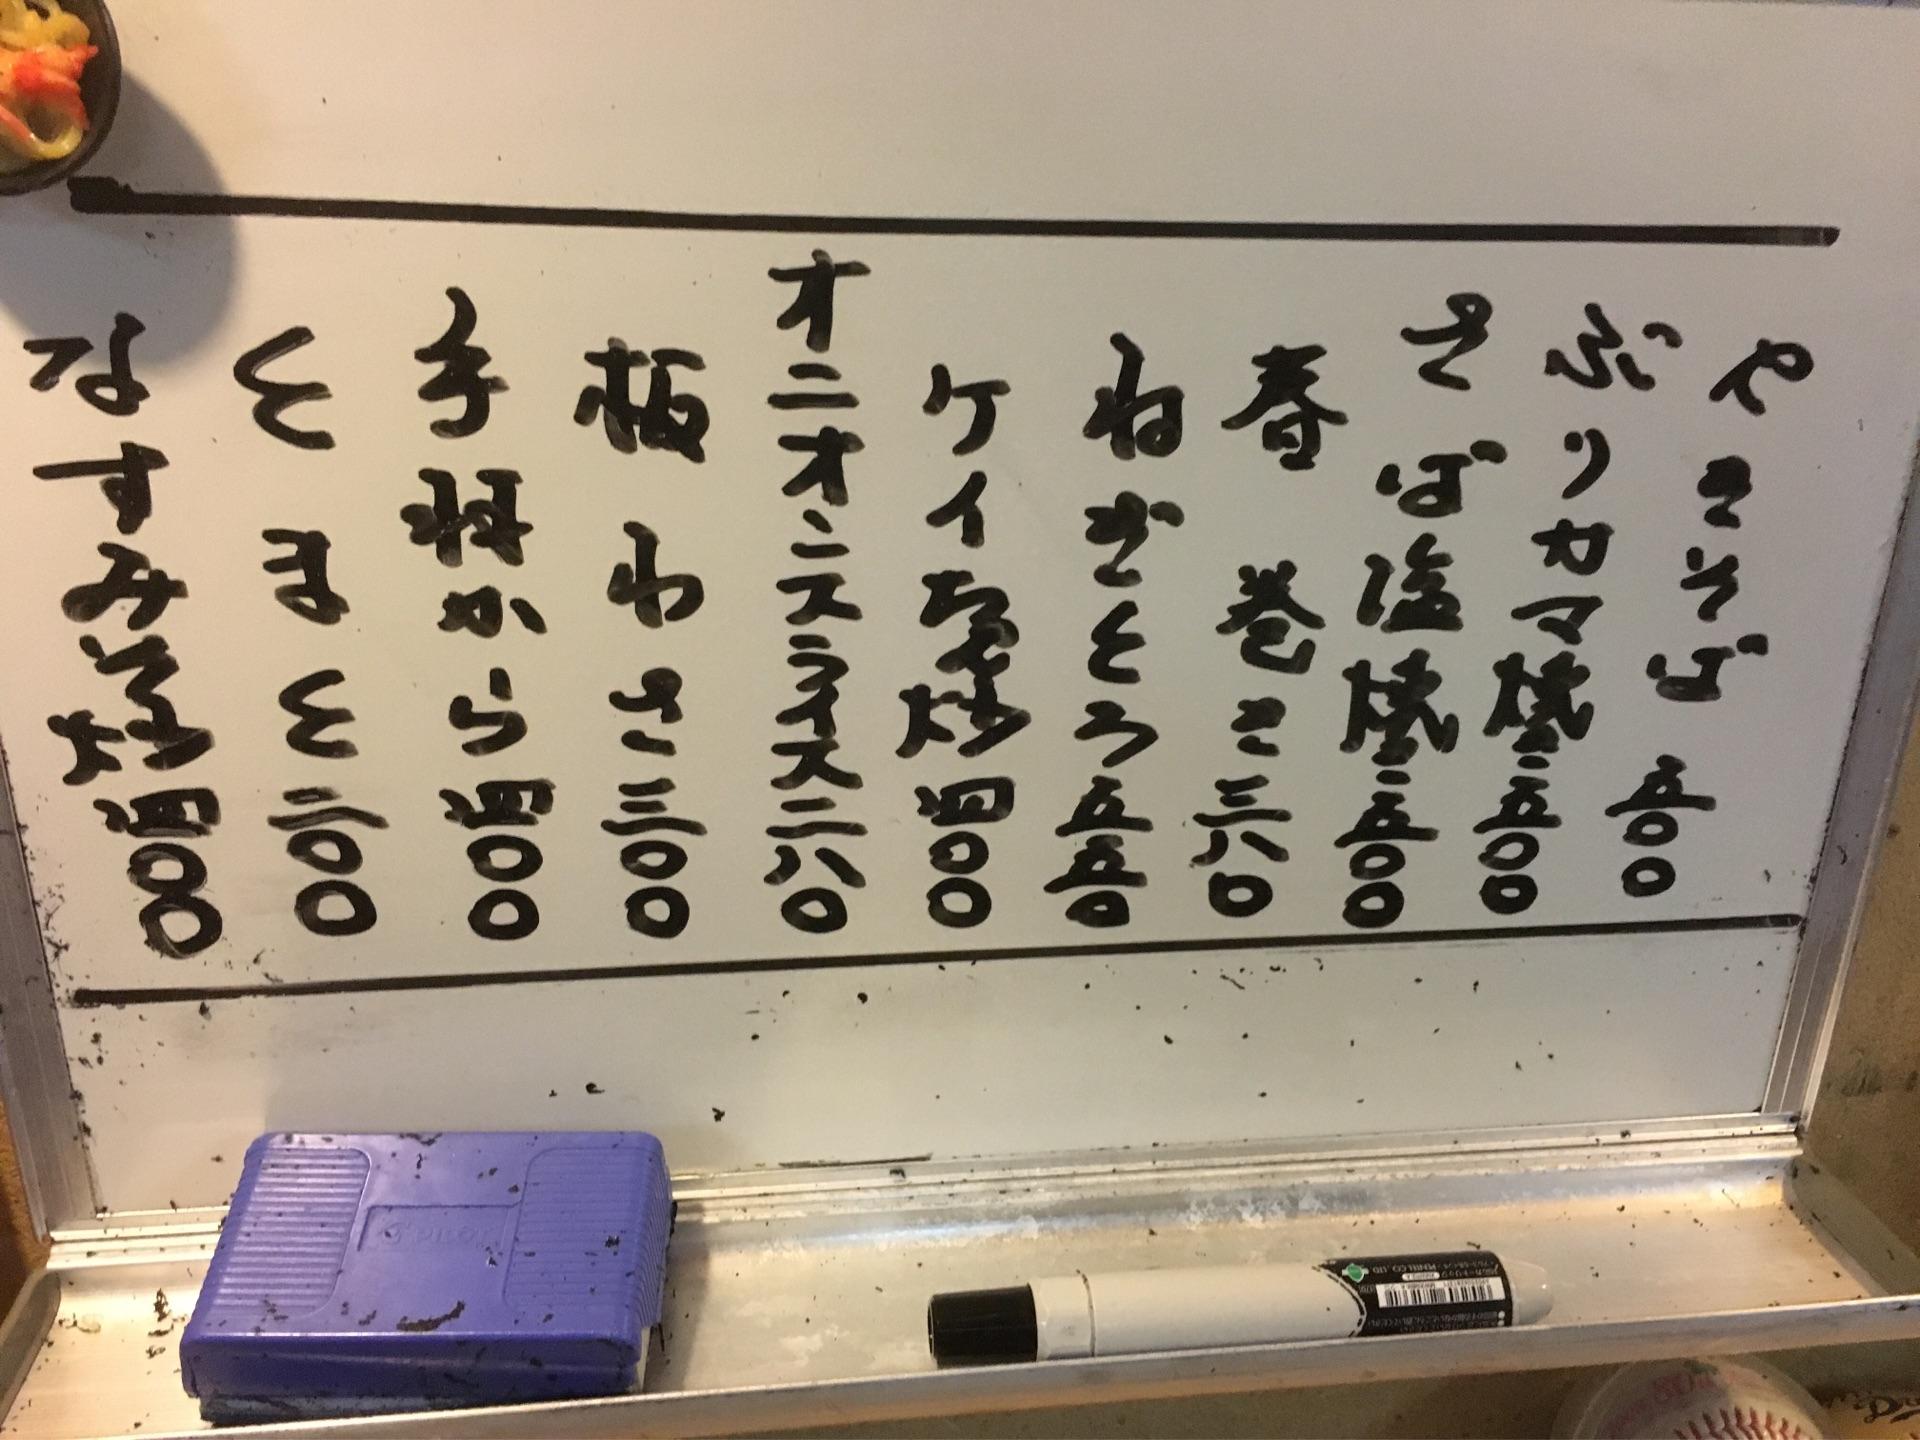 やきそば 五〇〇
ぶりカマ焼き 五〇〇
さば塩焼き 五〇〇
春巻き 三八〇
ねぎとろ 五五〇
ケイちゃん炒 四〇〇
オニオンスライス 二八〇
板わさ 三〇〇
手羽から 四〇〇
とまと 三〇〇
なすみそ炒 四〇〇
PILOT
PENTEL CO., LTD